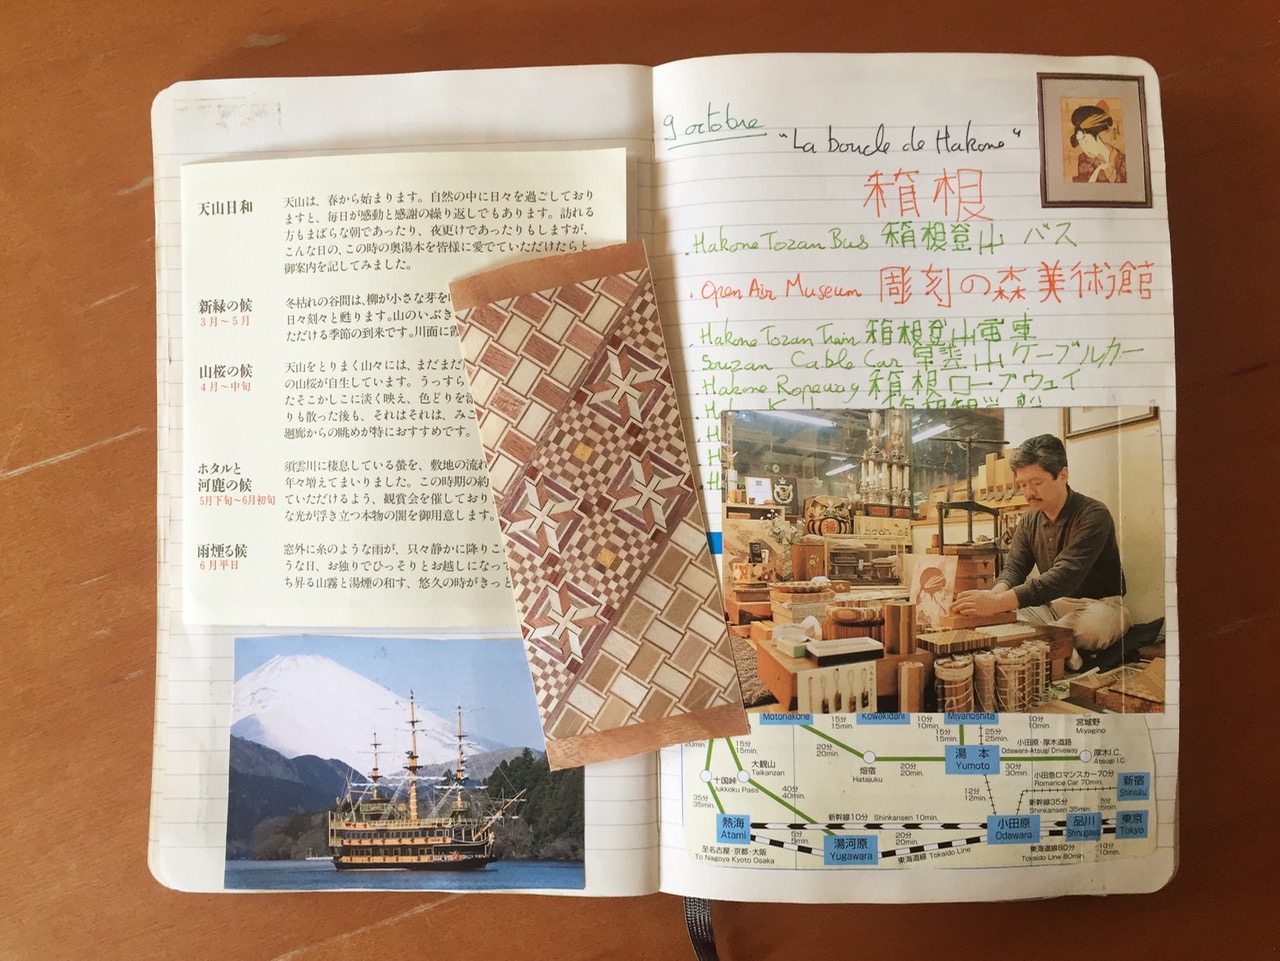 天山日和
天山は、春から始まります。自然の中に日々を過ごしており
ますと、毎日が感動と感謝の繰り返しでもあります。訪れる
方もまばらな朝であったり、夜更けであったりもしますが、
こんな日の、この時の奥湯本を皆様に愛でていただけたらと
御案内を記してみました。
新緑の候
3月〜5月
冬枯れの谷間は、柳が小さな芽を
日々刻々と甦ります。山のいぶき
ただける季節の到来です。川面に
山桜の候
4月〜中旬
天山をとりまく山々には、まだまだ
の山桜が自生しています。うっすら
たそこかしこに淡く映え、色どりを
りも散った後も、それはそれは、みご
廻廊からの眺めが特におすすめです。
ホタルと
河鹿の候
5月下旬〜6月初旬
須雲川に棲息している蛍を、敷地の流れ
年々増えてまいりました。この時期の約
ていただけるよう、観賞会を催しており
な光が浮き立つ本物の闇を御用意します。
雨煙る候
6月平日
窓外に糸のような雨が、只々静かに降りこ
うな日、お独りでひっそりとお越しになって
ち昇る山霧と湯煙の和す、悠久の時がきっと
9 octobre
"La boucle de Hakone"
箱根
. Hakone Tozan Bus 箱根登山 バス
. Open Air Museum 彫刻の森美術館
Hakone Tozan Train 箱根登山電車
Souzan Cable Car 早雲山 ケーブルカー
Hakone Ropeway 箱根ロープウェイ
Motohakone
Kowakidani
Miyanoshita
15分
15min.
10分
10min.
25分
25min.
10分
10min.
宮城野
Miyagino
20分
20min.
畑宿
Hatajuku
20分
20min.
湯本
Yumoto
小田原・厚木道路
Odawara-Atsugi Driveway
30分
30min.
厚木I.C.
Atsugi I.C.
20min.
15分
15min.
大観山
Taikanzan
十国峠
Jukkoku Pass
40分
40min.
35分
35min.
12分
12min.
小田急ロマンスカー70分
Romance Car 70min.
新宿
Shinjuku
新幹線35分
Shinkansen 35min.
5分
5min.
熱海
Atami
新幹線10分 Shinkansen 10min.
小田原
Odawara
品川
Shinagawa
東京
Tokyo
5分
5min.
湯河原
Yugawara
20分
20min.
東海道線 Tokaido Line
東海道線80分
Tokaido Line 80min.
10分
10min.
至名古屋・京都・大阪
To Nagoya Kyoto Osaka